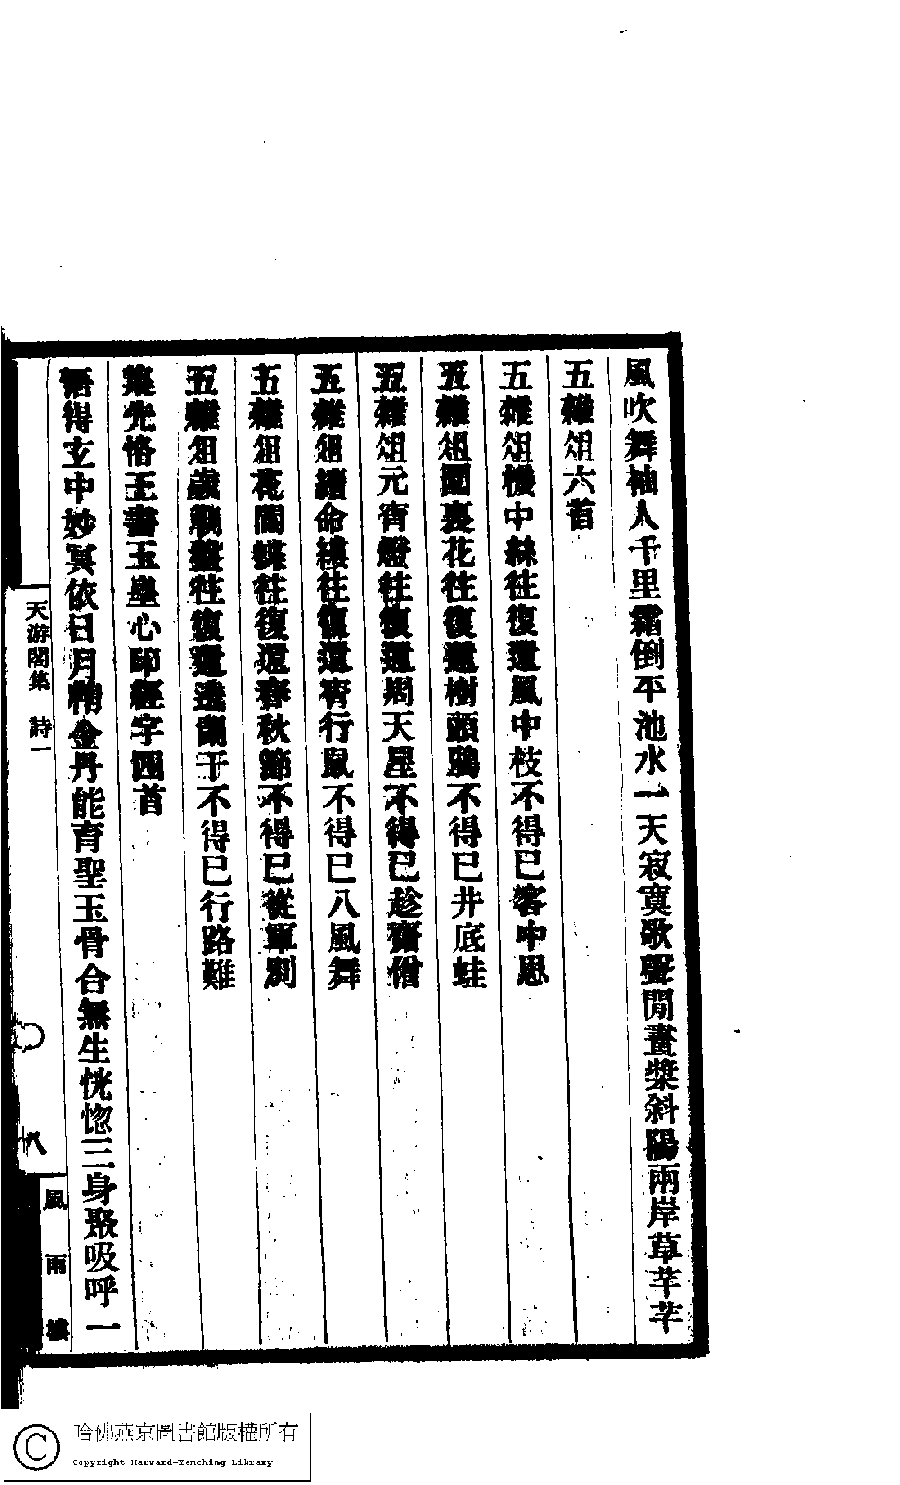 風吹舞袖人千里霜倒平池水一天寂寞歌聲閒畫槳斜陽兩岸草芊芊
五雜俎六首
五雜俎機中絲往復還風中枝不得已客中思
五雜俎園裏花往復還樹頭鴉不得已井底蛙
五雜俎元宵燈往復還周天星不得已趁齋僧
五雜俎續命縷往復還宵行鼠不得已八風舞
五雜俎花間蝶往復還春秋節不得已從軍別
五雜俎議戰盤往復還遶闌干不得已行路難
集先恪王書玉皇心印經字四首
悟得玄中妙冥依日月精金丹能育聖玉骨合無生恍惚三身聚吸呼一
天游閣集 詩一
八
風雨樓
哈佛燕京圖書館版權所有
Copyright Harvard-Yenching Library